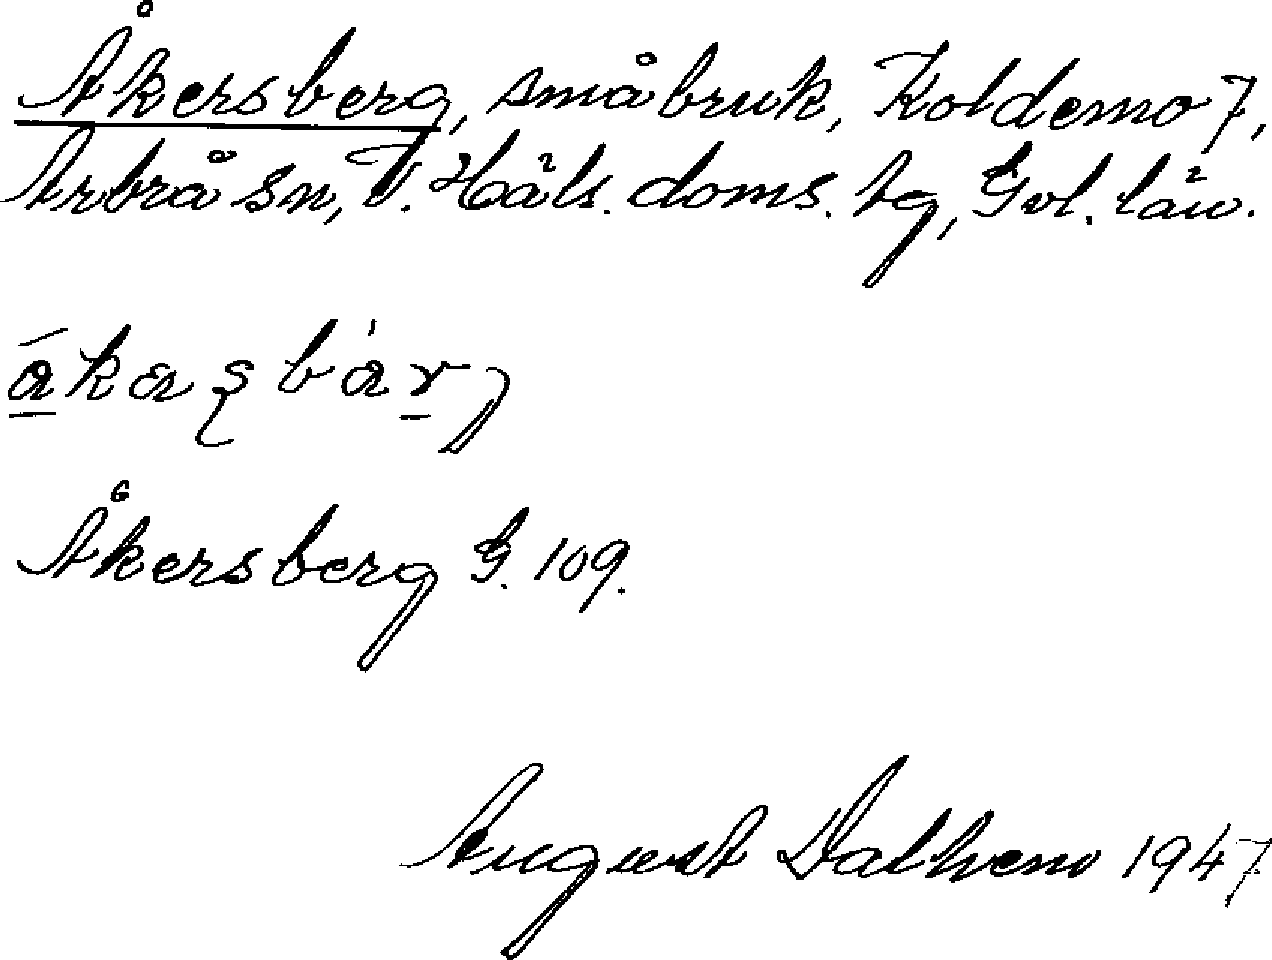 Åkersberg, småbruk, Koldemo 7,
Arbrå sn, V. Häls. doms. tg, Gvl. län.
Åkersberg G. 109.
August Dalhem 1947